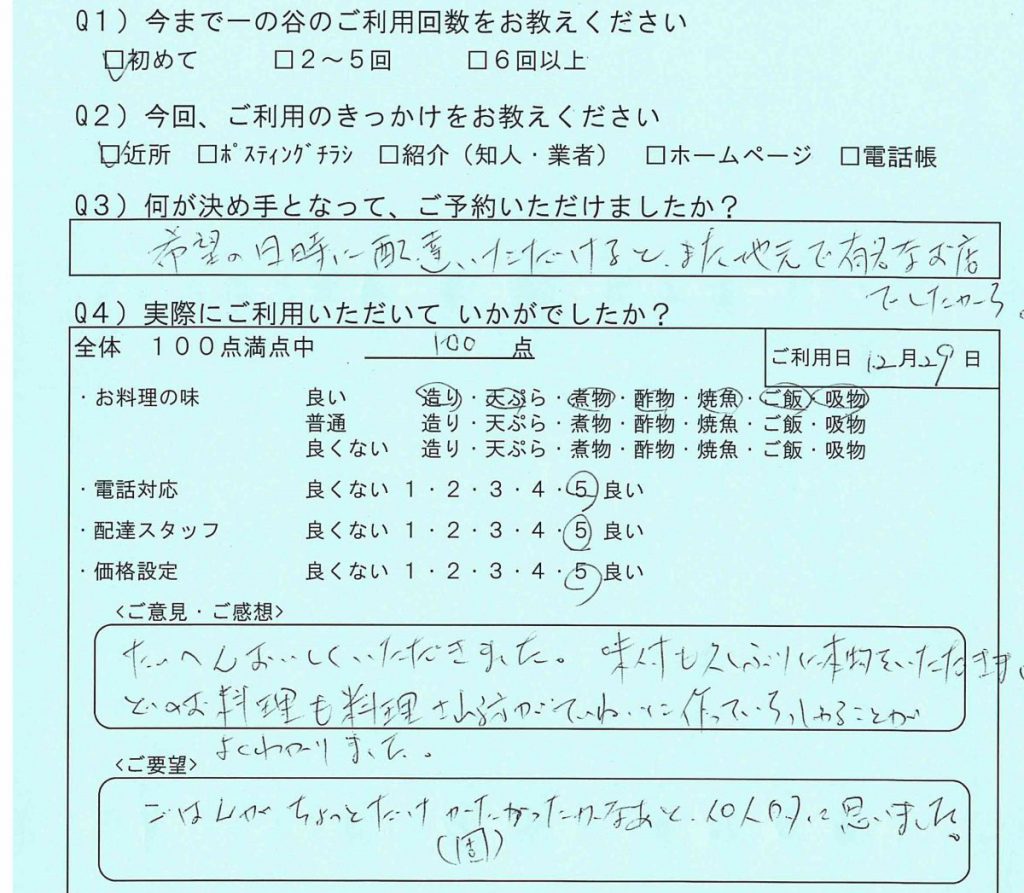 Q1）今まで一の谷のご利用回数をお教えください
□初めて □2～5回 □6回以上
Q2）今回、ご利用のきっかけをお教えください
□近所 □ﾎﾟｽﾃｨﾝｸﾞﾁﾗｼ □紹介（知人・業者） □ホームページ □電話帳
Q3）何が決め手となって、ご予約いただけましたか？
希望の日時に配達いただけると、また地元で有名なお店
でしたから。
Q4）実際にご利用いただいて いかがでしたか？
全体 100点満点中 100 点 ご利用日 12月29日
・お料理の味 良い 造り・天ぷら・煮物・酢物・焼魚・ご飯・吸物
普通 造り・天ぷら・煮物・酢物・焼魚・ご飯・吸物
良くない 造り・天ぷら・煮物・酢物・焼魚・ご飯・吸物
・電話対応 良くない 1・2・3・4・5 良い
・配達スタッフ 良くない 1・2・3・4・5 良い
・価格設定 良くない 1・2・3・4・5 良い
<ご意見・ご感想>
たいへんおいしくいただきました。味付も久しぶりに本物をいただきます。
どのお料理も料理さん方がていねいに作っていらっしゃることが
よくわかりました。
<ご要望>
ごはんがちょっとだけかたかったかなあと、個人的に思いました。
(固)